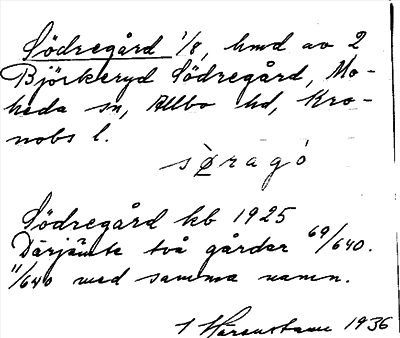 Södregård 1/8, hmd av 2
Björkeryd Södregård, Mo-
heda sn, Allbo hd, Kro-
nobs l.
sø̀ragó
Södregård kb 1925
Därjämte två gårdar 69/640.
11/640 med samma namn.
1936